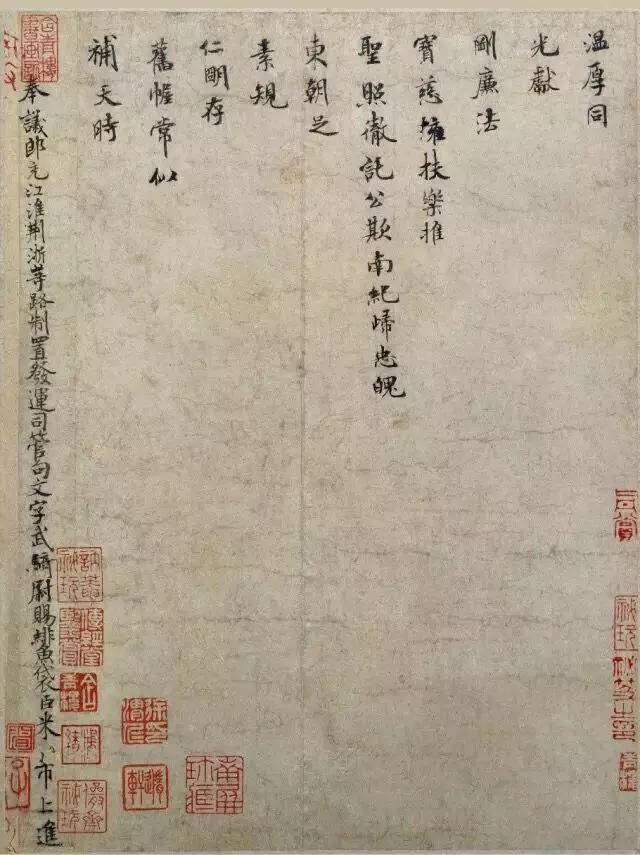 温厚同
光獻
剛廉法
寶慈擁扶樂推
聖照徹託公欺南紀啼忠魄
東朝足
素規
仁明存
舊幄常似
補天時
奉議郎充江淮荊浙等路制置發運司管勾文字武騎尉賜緋魚袋臣米芾上進